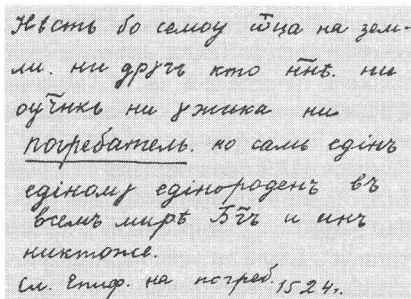 Нѣсть бо семоу ѿца на зем-
ли. ни другъ кто н҃нѣ. ни
оуч҃нкъ ни ужика ни
погребатель. но самъ едінъ
едіному едінороденъ въ
всемъ мирѣ Б҃гъ и инъ
никтоже.
См. Епиф. на погреб. 1524 г.